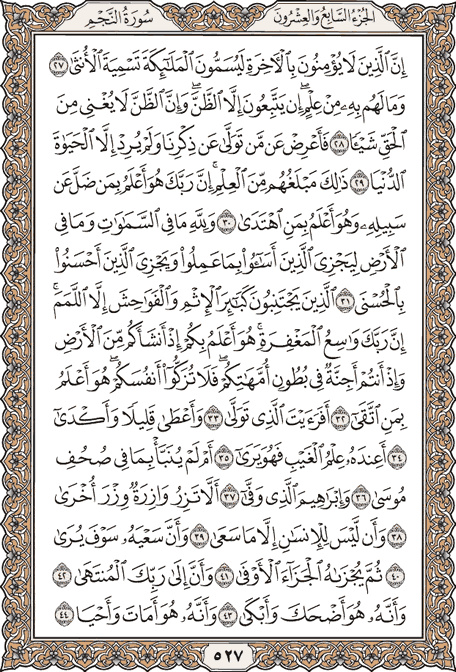 سُورَةُ النَّجْمِ
الجُزْءُ السَّابِعُ وَالعِشْرُونَ
إِنَّ ٱلَّذِينَ لَا يُؤْمِنُونَ بِٱلْأَخِرَةِ لَيُسَمُّونَ ٱلْمَلَٰٓئِكَةَ تَسْمِيَةَ ٱلْأُنثَىٰ ٢٧
وَمَا لَهُم بِهِۦ مِنْ عِلْمٍ إِن يَتَّبِعُونَ إِلَّا ٱلظَّنَّ وَإِنَّ ٱلظَّنَّ لَا يُغْنِى مِنَ
ٱلْحَقِّ شَيْـًٔا ٢٨ فَأَعْرِضْ عَن مَّن تَوَلَّىٰ عَن ذِكْرِنَا وَلَمْ يُرِدْ إِلَّا ٱلْحَيَوٰةَ
ٱلدُّنْيَا ٢٩ ذَٰلِكَ مَبْلَغُهُم مِّنَ ٱلْعِلْمِ إِنَّ رَبَّكَ هُوَ أَعْلَمُ بِمَن ضَلَّ عَن
سَبِيلِهِۦ وَهُوَ أَعْلَمُ بِمَنِ ٱهْتَدَىٰ ٣٠ وَلِلَّهِ مَا فِى ٱلسَّمَٰوَٰتِ وَمَا فِى
ٱلْأَرْضِ لِيَجْزِىَ ٱلَّذِينَ أَسَٰٓـُٔوا۟ بِمَا عَمِلُوا۟ وَيَجْزِىَ ٱلَّذِينَ أَحْسَنُوا۟
بِٱلْحُسْنَى ٣١ ٱلَّذِينَ يَجْتَنِبُونَ كَبَٰٓئِرَ ٱلْإِثْمِ وَٱلْفَوَٰحِشَ إِلَّا ٱللَّمَمَ
إِنَّ رَبَّكَ وَٰسِعُ ٱلْمَغْفِرَةِ هُوَ أَعْلَمُ بِكُمْ إِذْ أَنشَأَكُم مِّنَ ٱلْأَرْضِ
وَإِذْ أَنتُمْ أَجِنَّةٌ فِى بُطُونِ أُمَّهَٰتِكُمْ فَلَا تُزَكُّوٓا۟ أَنفُسَكُمْ هُوَ أَعْلَمُ
بِمَنِ ٱتَّقَىٰٓ ٣٢ أَفَرَءَيْتَ ٱلَّذِى تَوَلَّىٰ ٣٣ وَأَعْطَىٰ قَلِيلًا وَأَكْدَىٰٓ
٣٤ أَعِندَهُۥ عِلْمُ ٱلْغَيْبِ فَهُوَ يَرَىٰٓ ٣٥ أَمْ لَمْ يُنَبَّأْ بِمَا فِى صُحُفِ
مُوسَىٰ ٣٦ وَإِبْرَٰهِيمَ ٱلَّذِى وَفَّىٰٓ ٣٧ أَلَّا تَزِرُ وَازِرَةٌ وِزْرَ أُخْرَىٰ
٣٨ وَأَن لَّيْسَ لِلْإِنسَٰنِ إِلَّا مَا سَعَىٰ ٣٩ وَأَنَّ سَعْيَهُۥ سَوْفَ يُرَىٰ
٤٠ ثُمَّ يُجْزَىٰهُ ٱلْجَزَآءَ ٱلْأَوْفَىٰ ٤١ وَأَنَّ إِلَىٰ رَبِّكَ ٱلْمُنتَهَىٰ ٤٢
وَأَنَّهُۥ هُوَ أَضْحَكَ وَأَبْكَىٰ ٤٣ وَأَنَّهُۥ هُوَ أَمَاتَ وَأَحْيَا ٤٤
٥٢٧